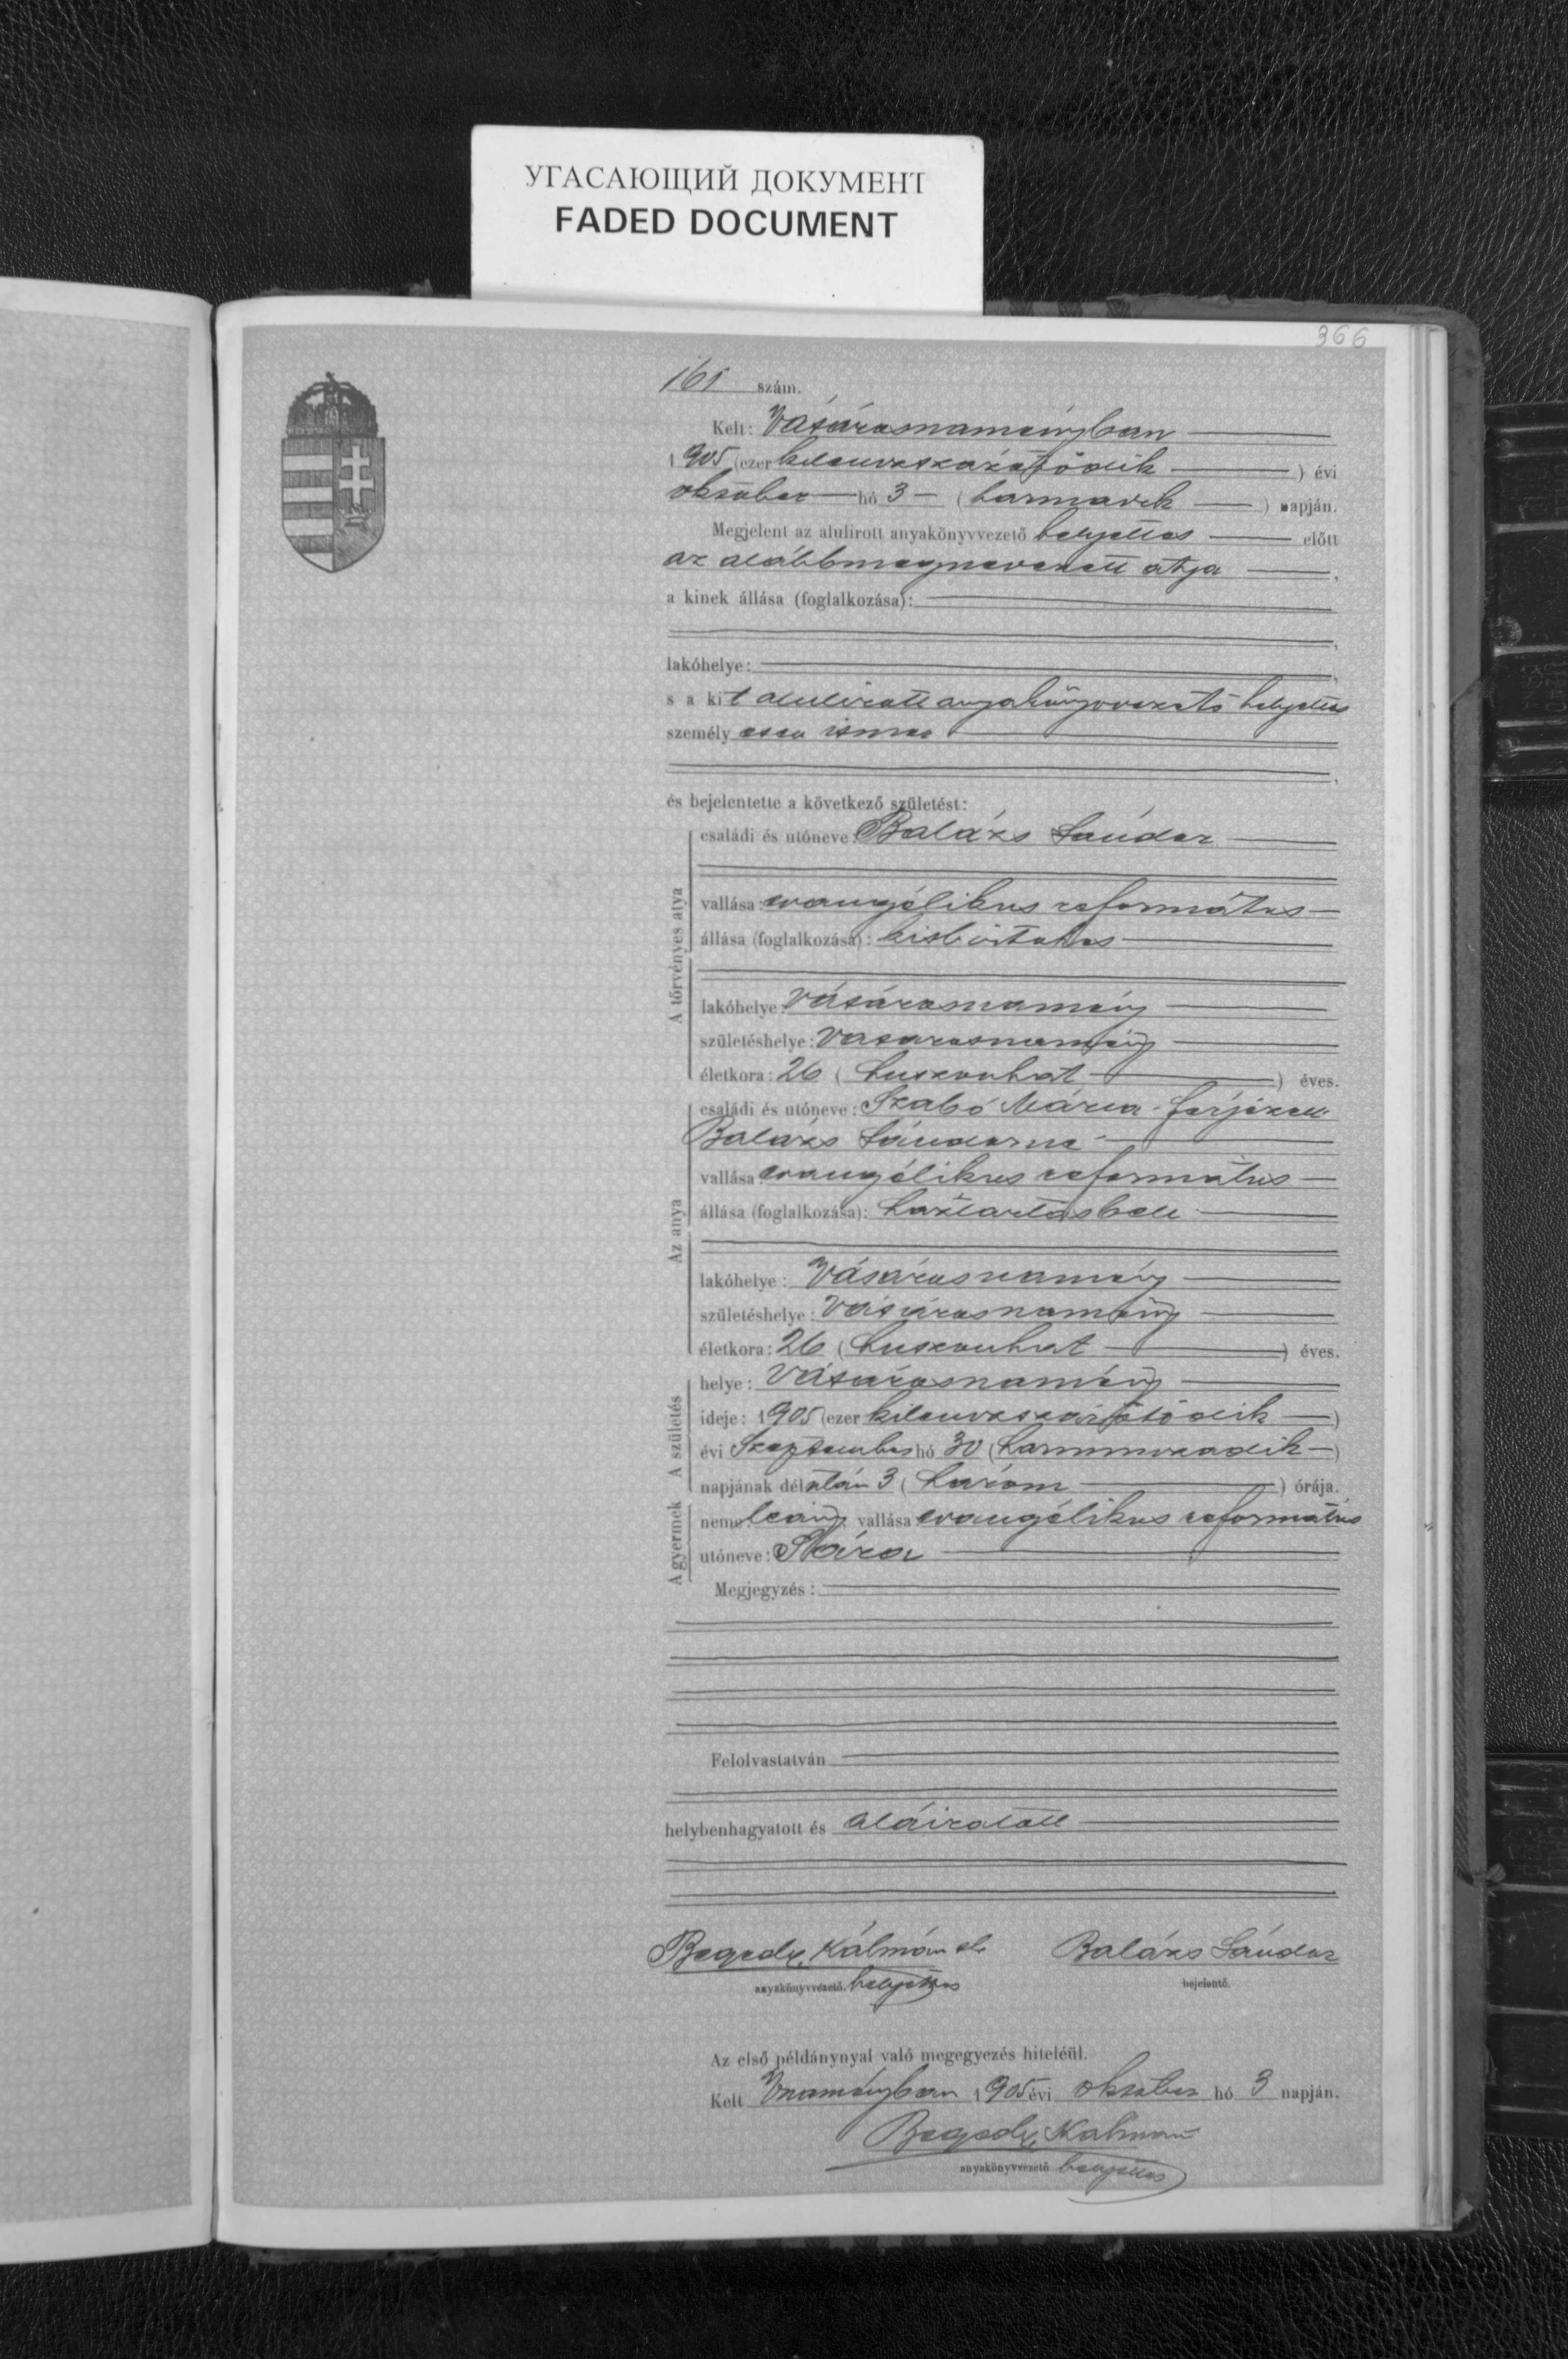 УГАСАЮЩИЙ ДОКУМЕНТ
FADED DOCUMENT
366
161 szám.
Kelt: Vásárosnaményban
1905 (ezer kilenczszázötödik) évi
október hó 3 (harmadik) napján.
Megjelent az alulirott anyakönyvvezető helyettes előtt
az alább megnevezett atya,
a kinek állása (foglalkozása):
lakóhelye:
s a kit alulirott anyakönyvvezető helyettes
személyesen ismer
és bejelentette a következő születést:
A törvényes atya
családi és utóneve: Balázs Sándor
vallása: evangélikus református
állása (foglalkozása): kisbirtokos
lakóhelye: Vásárosnamény
születéshelye: Vásárosnamény
életkora: 26 (huszonhat) éves.
Az anya
családi és utóneve: Szabó Mária férjezett
Balázs Sándorné
vallása: evangélikus református
állása (foglalkozása): háztartásbeli
lakóhelye: Vásárosnamény
születéshelye: Vásárosnamény
életkora: 26 (huszonhat) éves.
A születés
helye: Vásárosnamény
ideje: 1905 (ezer kilenczszázötödik)
évi Szeptember hó 30 (harminczadik)
napjának délután 3 (három) órája.
A gyermek
neme: leány, vallása: evangélikus református
utóneve: Sára
Megjegyzés:
Felolvastatván
helybenhagyatott és aláiratott
Kálmán Balázs Sándor
anyakönyvvezető. helyettes bejelentő.
Az első példánynyal való megegyezés hiteléül.
Kelt Vnaményban 1905 évi október hó 3 napján.
Kálmán
anyakönyvvezető helyettes